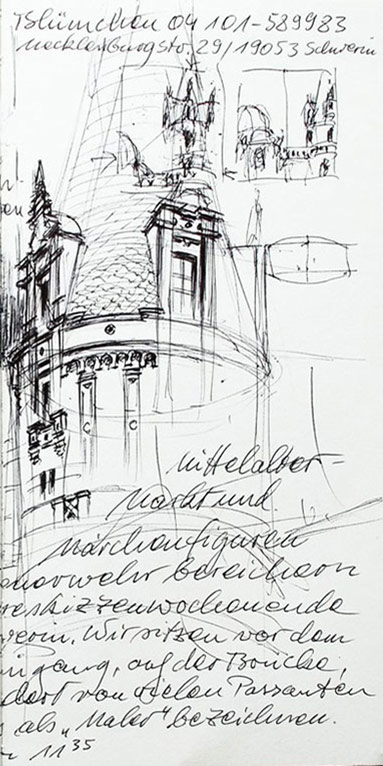 Blümchen 04 101-589983
Mecklenburgstr. 29/19053 Schwerin
Mittelalter-
markt und
Märchenfiguren
bereichern
skizzenwochenende
Wir sitzen vor dem
auf der Brücke,
dort von vielen Passanten
als „Maler“ bezeichnen.
11 35